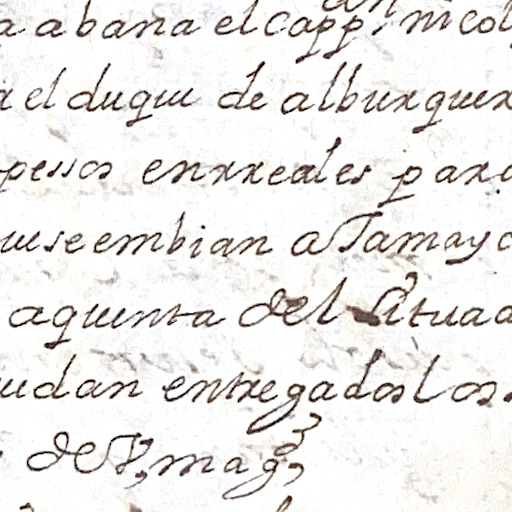 a abana el capp.an nicol
el duque de alburquer
pessos enrreales para
que se embian a Tamayo
a quenta del situad
quedan entregados los
de V, mag.d